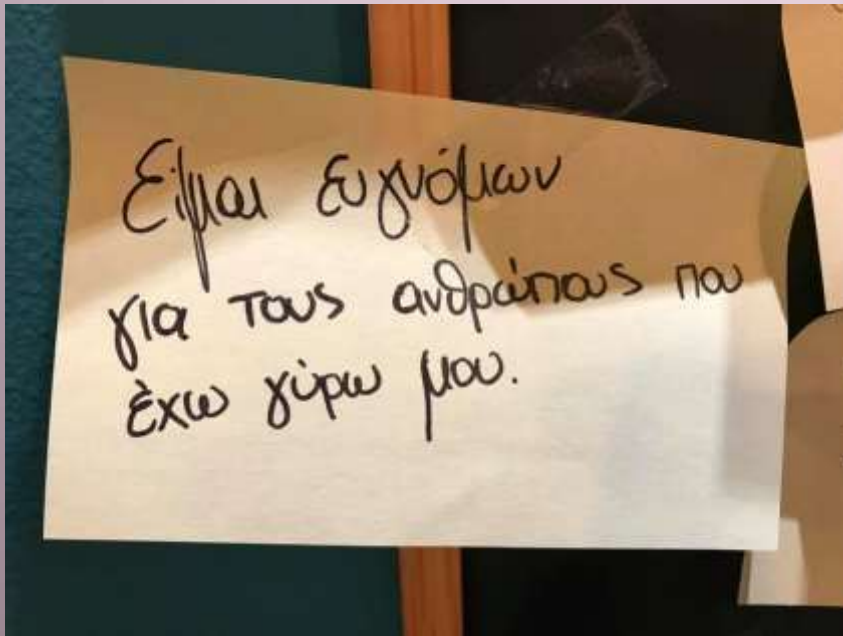 Είμαι ευγνόμων
για τους ανθρώπους που
έχω γύρω μου.